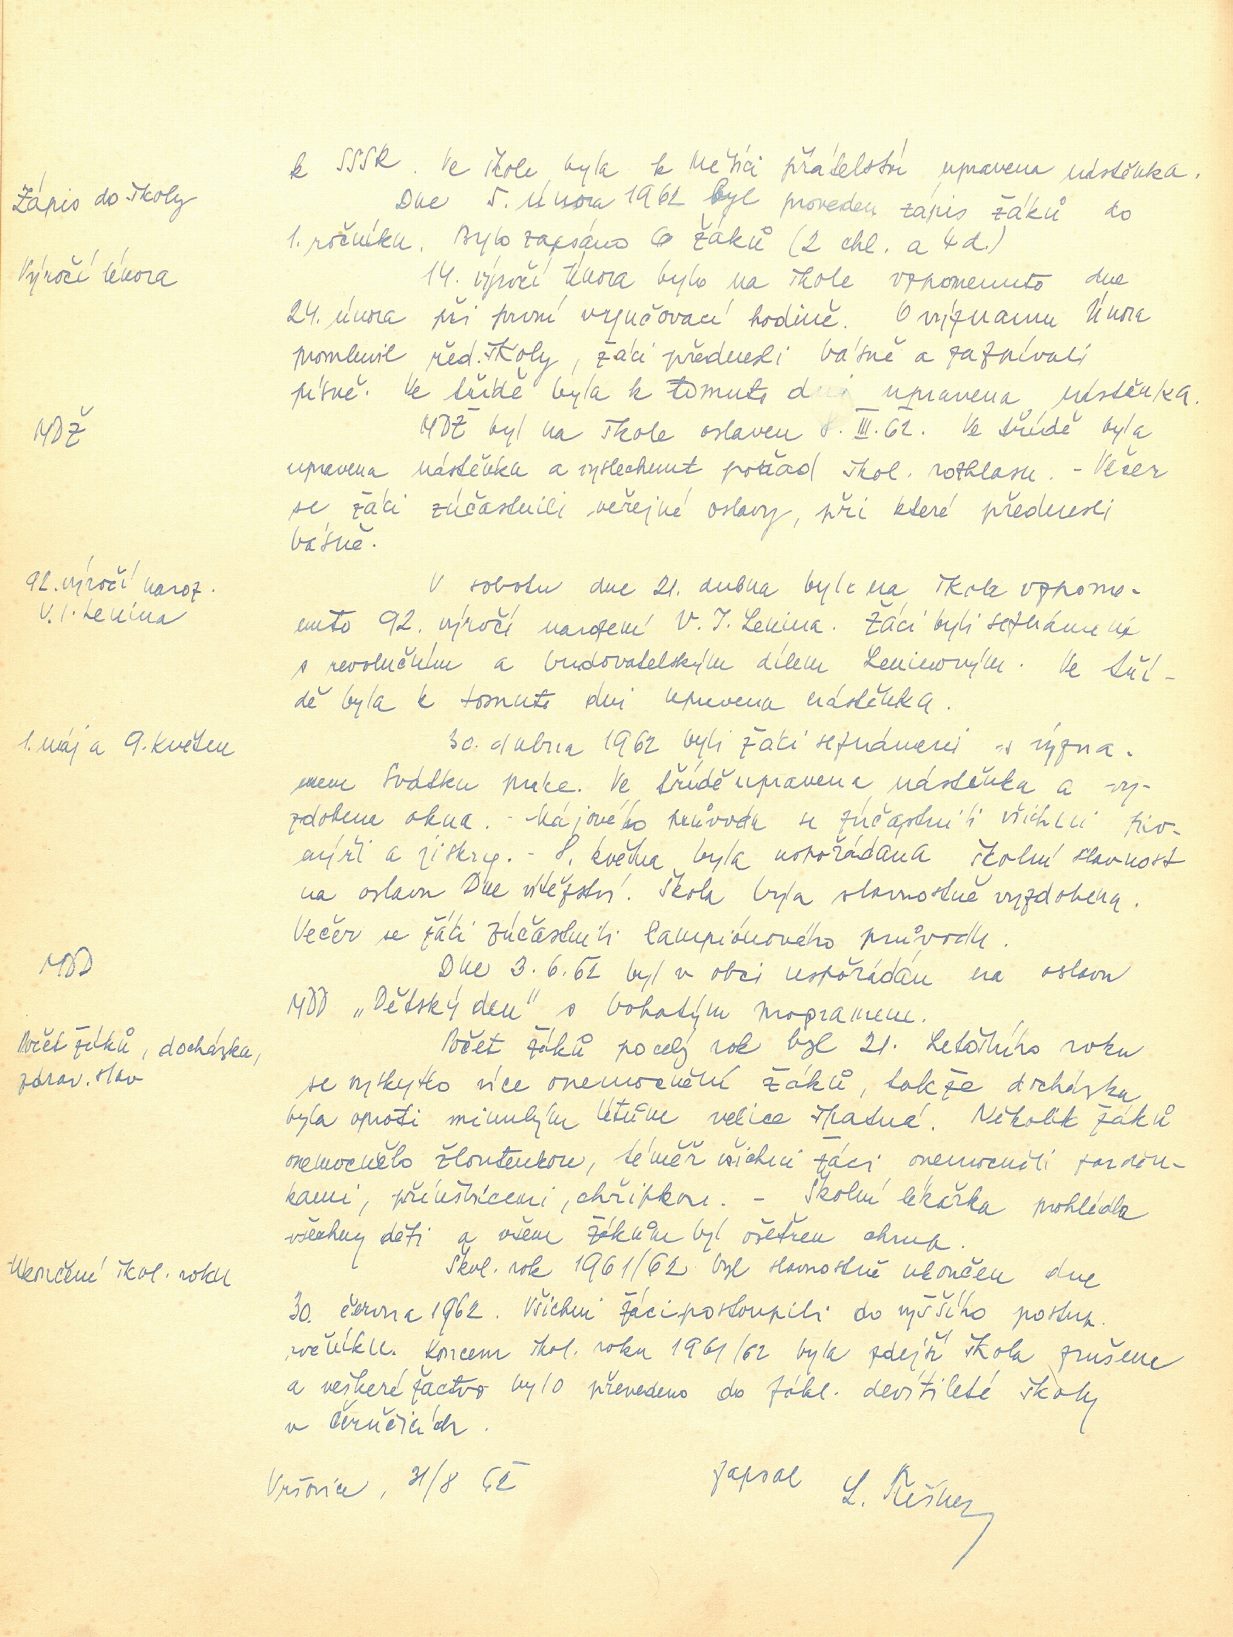 k SSSR. Ve škole byla k Měsíci přátelství upravena nástěnka.
Zápis do školy
Dne 5. února 1962 byl proveden zápis žáků do
1. ročníku. Bylo zapsáno 6 žáků (2 chl. a 4 d.)
Výročí února
14. výročí Února bylo na škole vzpomenuto dne
24. února při první vyučovací hodině. O významu Února
promluvil řed. školy, žáci přednesli básně a zazpívali
písně. Ve třídě byla k tomuto dni upravena nástěnka.
MDŽ
MDŽ byl na škole oslaven 8. III. 62. Ve třídě byla
upravena nástěnka a vyslechnut pořad škol. rozhlasu. - Večer
se žáci zúčastnili veřejné oslavy, při které přednesli
básně.
92. výročí naroz.
V. I. Lenina
V sobotu dne 21. dubna bylo na škole vzpome-
nuto 92. výročí narození V. I. Lenina. Žáci byli seznámeni
s revolučním a budovatelským dílem Leninovým. Ve tří-
dě byla k tomuto dni upravena nástěnka.
1. máj a 9. květen
30. dubna 1962 byli žáci seznámeni s význa-
mem Svátku práce. Ve třídě upravena nástěnka a vy-
zdobena okna. - Májového průvodu se zúčastnili všichni pio-
nýři a jiskry. - 8. května byla uspořádána školní slavnost
na oslavu Dne vítězství. Škola byla slavnostně vyzdobena.
Večer se žáci zúčastnili lampiónového průvodu.
MDD
Dne 3. 6. 62 byl v obci uspořádán na oslavu
MDD „Dětský den" s bohatým programem.
Počet žáků, docházka,
zdrav. stav
Počet žáků po celý rok byl 21. Letošního roku
se vyskytlo více onemocnění žáků, takže docházka
byla oproti minulým létům velice špatná. Několik žáků
onemocnělo žloutenkou, téměř všichni žáci onemocněli zarděn-
kami, příušnicemi, chřipkou. - Školní lékařka prohlédla
všechny děti a všem žákům byl ošetřen chrup.
Ukončení škol. roku
Škol. rok 1961/62 byl slavnostně ukončen dne
30. června 1962. Všichni žáci postoupili do vyššího postup.
ročníku. Koncem škol. roku 1961/62 byla zdejší škola zrušena
a veškeré žactvo bylo převedeno do zákl. devítileté školy
v Černčicích.
Vršovice, 31/8 62
zapsal L.